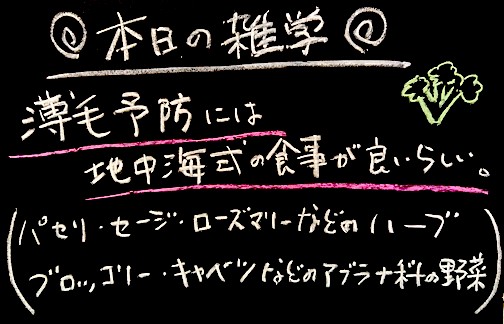 本日の雑学
薄毛予防には
地中海式の食事が良いらしい。
(パセリ・セージ・ローズマリーなどのハーブ
ブロッコリー・キャベツなどのアブラナ科の野菜)